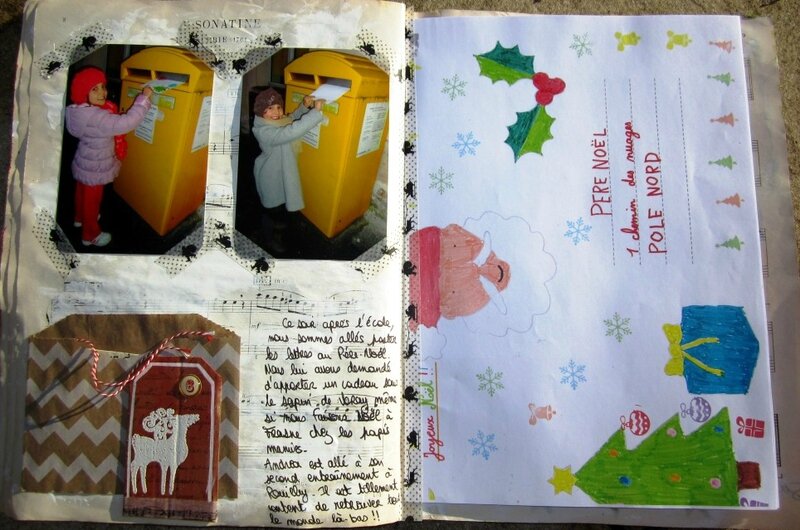 SONATINE
Ce soir après l'école,
nous sommes allés porter
les lettres au Père-Noël.
Nous lui avons demandé
d'apporter un cadeau sous
le sapin de même
si nous Noël à
Frasne chez les papis
mamies.
est allé à son
second entraînement à
Pouilly. Il est tellement
content de retrouver tout
le monde là-bas !!
PERE NOËL
1 chemin des nuages
POLE NORD
Joyeux Noël !!